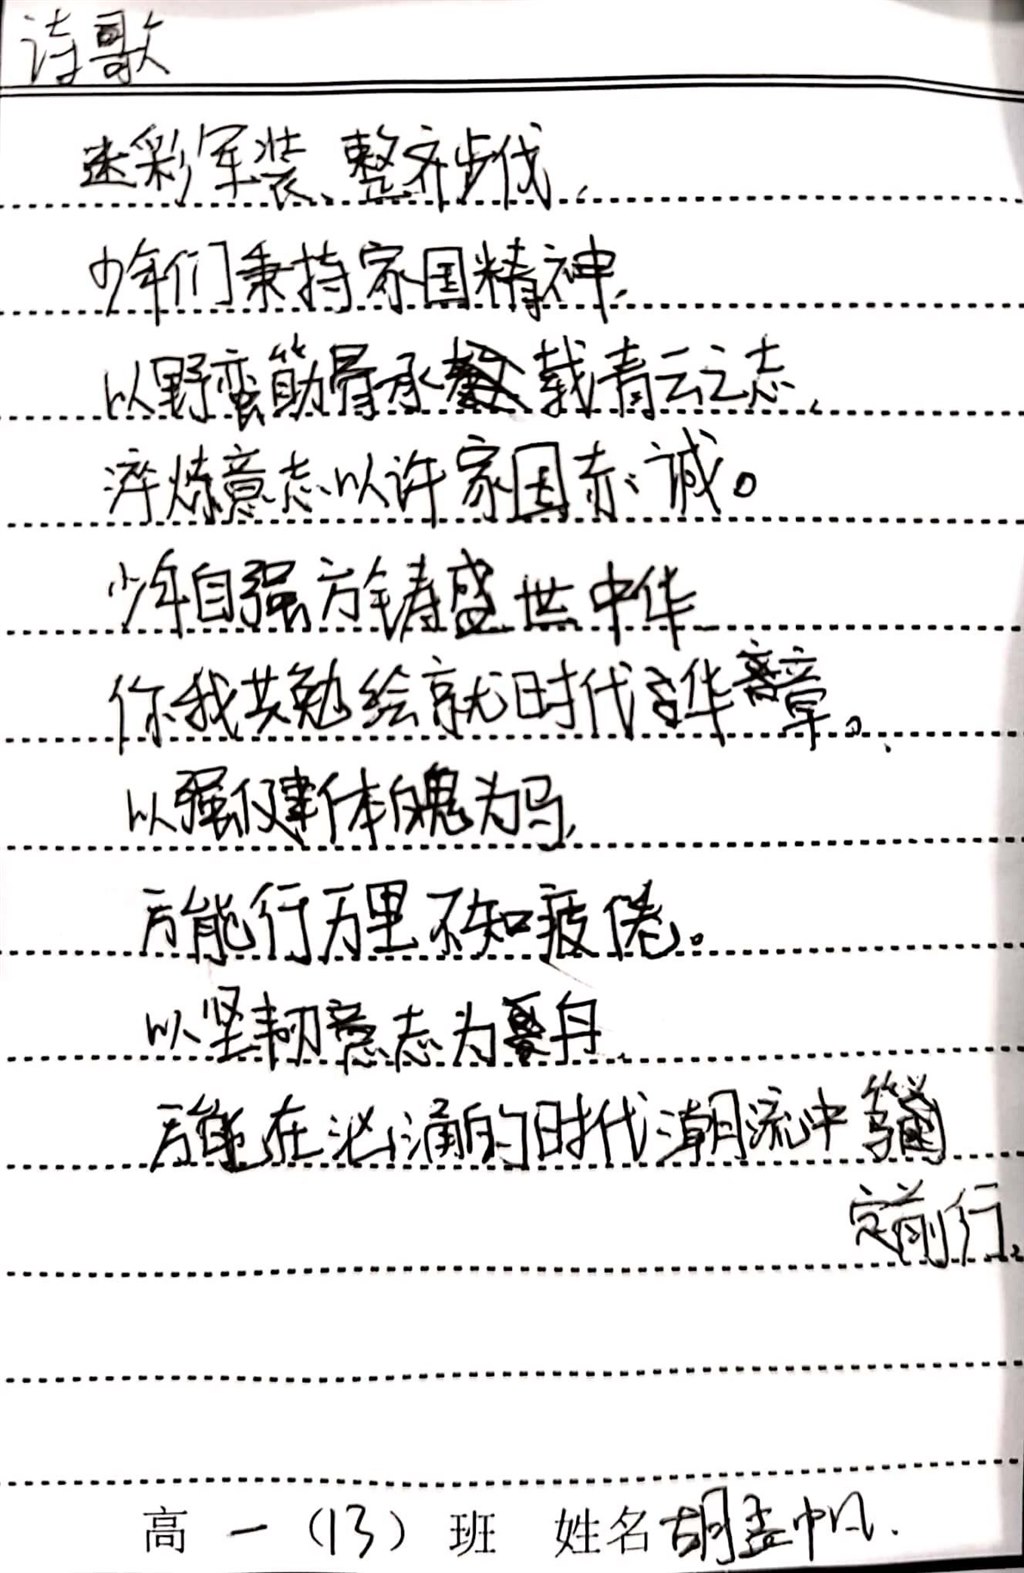 诗歌
迷彩军装、整齐步伐,
少年们秉持家国精神,
以野蛮筋骨承载青云之志,
淬炼意志以许家国赤诚。
少年自强方铸盛世中华
你我共勉绘就时代华章。
以强健体魄为马,
方能行万里不知疲倦。
以坚韧意志为舟,
方能在汹涌的时代潮流中
定前行.
高一(13)班 姓名胡孟帆.